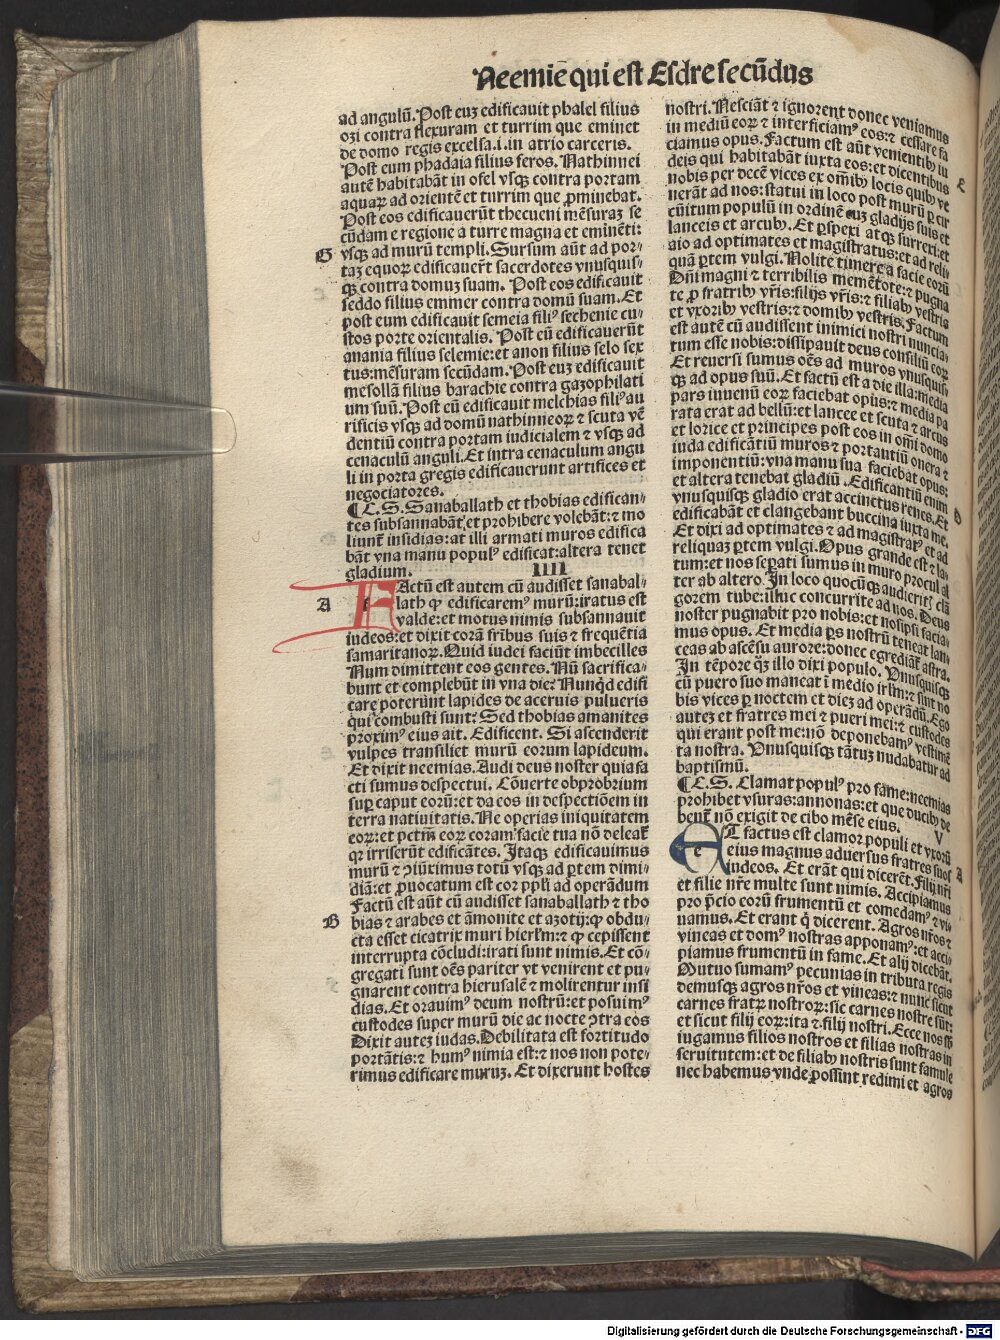 Neemie qui est Esdre secūdus
ad angulū. Post euꝫ edificauit phalel filius
ozi contra flexuram et turrim que eminet
de domo regis excelsa.i.in atrio carceris.
Post eum phadaia filius feros. Nathinnei
autē habitabāt in ofel vsqꝫ contra portam
aquaꝝ ad orientē et turrim que ꝓminebat.
Post eos edificauerūt thecueni mēsuraꝫ se
cūdam e regione a turre magna et eminēti:
G vsqꝫ ad murū templi. Sursum aūt ad por-
taꝫ equoꝝ edificauerūt sacerdotes vnusquis-
qꝫ contra domuꝫ suam. Post eos edificauit
seddo filius emmer contra domū suam. Et
post eum edificauit semeia filiꝰ sechenie cu-
stos porte orientalis. Post eū edificauerūt
anania filius selemie:et anon filius selo sex
tus:mēsuram secūdam. Post euꝫ edificauit
mesollā filius barachie contra gazophilati
um suū. Post eū edificauit melchias filiꝰ au
rificis vsqꝫ ad domū nathinneoꝝ ⁊ scuta vē
dentiū contra portam iudicialem ⁊ vsqꝫ ad
cenaculū anguli. Et intra cenaculum angu
li in porta gregis edificauerunt artifices et
negociatores.
¶C.S. Sanaballath et thobias edifican-
tes subsannabāt,et prohibere volebāt:⁊ mo
liunt̄ insidias:at illi armati muros edifica
bāt vna manu populꝰ edificat:altera tenet
gladium. IIII
f Actū est autem cū audisset sanabal-
A lath ꝙ edificaremꝰ murū:iratus est
valde:et motus nimis subsannauit
iudeos:et dixit corā fribus suis ⁊ frequētia
samaritanoꝝ. Quid iudei faciūt imbecilles
Num dimittent eos gentes. Nū sacrifica-
bunt et complebūt in vna die? Nunq̄d edifi
care poterūt lapides de aceruis pulueris
qui combusti sunt? Sed thobias amanites
proximꝰ eius ait. Edificent. Si ascenderit
vulpes transiliet murū eorum lapideum.
Et dixit neemias. Audi deus noster quia fa
cti sumus despectui. Cōuerte obprobrium
suꝑ caput eorū:et da eos in despectiōem in
terra natiuitatis. Ne operias iniquitatem
eoꝝ:et pctm̄ eoꝝ coram facie tua nō deleat̄
qꝛ irriserūt edificātes. Itaqꝫ edificauimus
murū ⁊ ꝯiūximus totū vsqꝫ ad ꝑtem dimi-
diā:et ꝓuocatum est cor ppl̄i ad operādum
Factū est aūt cū audisset sanaballath ⁊ tho
B bias ⁊ arabes et āmonite et azotij:ꝙ obdu-
cta esset cicatrix muri hierl̄m:⁊ ꝙ cepissent
interrupta cōcludi:irati sunt nimis. Et cō-
gregati sunt oēs pariter vt venirent et pu-
gnarent contra hierusalē ⁊ molirentur insi
dias. Et orauimꝰ deum nostrū:et posuimꝰ
custodes super murū die ac nocte ꝯtra eos
Dixit auteꝫ iudas. Debilitata est fortitudo
portātis:⁊ humꝰ nimia est:⁊ nos non pote-
rimus edificare muruꝫ. Et dixerunt hostes
nostri. Nesciāt ⁊ ignorent donec veniamus
in mediū eoꝝ ⁊ interficiamꝰ eos:⁊ cessare fa
ciamus opus. Factum est aūt venientibꝫ iu
deis qui habitabāt iuxta eos:et dicentibus C
nobis per decē vices ex om̄ibꝫ locis quibꝫ ve
nerāt ad nos:statui in loco post murū ꝑ cir
cūitum populū in ordinē cuꝫ gladijs suis et
lanceis et arcubꝫ. Et ꝑspexi atqꝫ surrexi:et
aio ad optimates et magistratus:et ad reli-
quā ꝑtem vulgi. Nolite timere a facie eorū
Dn̄i magni ⁊ terribilis memētote:⁊ pugna
te ꝓ fratribꝫ vr̄is:filijs vr̄is:⁊ filiabꝫ vestris
et vxoribꝫ vestris:⁊ domibꝫ vestris. Factum
est autē cū audissent inimici nostri nuncia-
tum esse nobis:dissipauit deus consiliū eoꝝ
Et reuersi sumus oēs ad muros vnusquis-
qꝫ ad opus suū. Et factū est a die illa:media
pars iuuenū eoꝝ faciebat opus:⁊ media pa
rata erat ad bellū:et lancee et scuta ⁊ arcus
et lorice et principes post eos in om̄i domo
iuda edificātiū muros ⁊ portantiū onera ⁊
imponentiū:vna manu sua faciebat opus:
et altera tenebat gladiū. Edificantiū enim
vnusquisqꝫ gladio erat accinctus renes. Et
edificabāt et clangebant buccina iuxta me. D
Et dixi ad optimates ⁊ ad magistratꝰ et ad
reliquaꝫ ꝑtem vulgi. Opus grande est ⁊ la-
tum:et nos seꝑati sumus in muro procul al
ter ab altero. In loco quocūqꝫ audierit̄ clā
gorem tube:illuc concurrite ad nos. Deus
noster pugnabit pro nobis:et nosipsi facia-
mus opus. Et media ꝑs nostrū teneat lan-
ceas ab ascēsu aurore:donec egrediāt̄ astra.
In tēpore qꝫ illo dixi populo. Vnusquisqꝫ
cū puero suo maneat ī medio irl̄m:⁊ sint no
bis vices ꝑ noctem et dieꝫ ad operādū. Ego
auteꝫ et fratres mei ⁊ pueri mei:⁊ custodes
qui erant post me:nō deponebamꝰ vestimē
ta nostra. Vnusquisqꝫ tātuꝫ nudabatur ad
baptismū.
¶C.S. Clamat populꝰ pro fame:neemias
prohibet vsuras:annonas:et que ducibꝫ de
bent̄ nō exigit de cibo mēse eius. V
e T factus est clamor populi et vxorū
eius magnus aduersus fratres suos A
iudeos. Et erāt qui dicerēt. Filij nr̄i
et filie nr̄e multe sunt nimis. Accipiamus
pro p̄cio eorū frumentū et comedamꝰ ⁊ vi-
uamus. Et erant q̄ dicerent. Agros nr̄os ⁊
vineas et domꝰ nostras apponamꝰ:et acci-
piamus frumentū in fame. Et alij dicebāt.
Mutuo sumamꝰ pecunias in tributa regis
demusqꝫ agros nr̄os et vineas:⁊ nunc sicut
carnes fratꝝ nostroꝝ:sic carnes nostre sūt:
et sicut filij eoꝝ:ita ⁊ filij nostri. Ecce nos sb̄
iugamus filios nostros et filias nostras in
seruitutem:et de filiabꝫ nostris sunt famule
nec habemus vnde ꝓssint redimi et agros
Digitalisierung gefördert durch die Deutsche Forschungsgemeinschaft - DFG